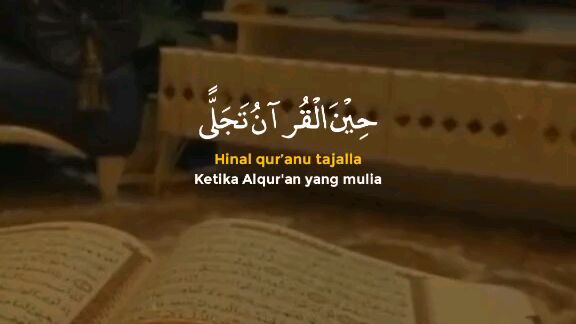 حِيْنَ الْقُر آنُ تَجَلًّى
Hinal qur'anu tajalla
Ketika Alqur'an yang mulia